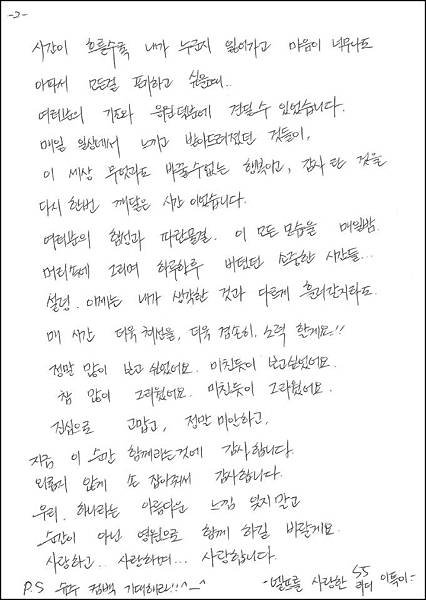 -2-
시간이 흐를수록 내가 누군지 잃어가고 마음이 너무나도
아파서 모든걸 포기하고 싶을때..
여러분의 기도와 응원덕분에 견딜수 있었습니다.
매일 일상에서 느끼고 받아드려졌던 것들이,
이 세상 무엇과도 바꿀수없는 행복이고, 감사란 것을
다시 한번 깨달은 시간 이었습니다.
여러분의 함성과 파란물결. 이 모든 모습을 매일밤.
머리속에 그리며 하루하루 버텼던 소중한 시간들...
설령. 이제는 내가 생각한 것과 다르게 흘러간지라도.
매 시간 더욱 최선을, 더욱 겸손히, 노력 할게요!!
정말 많이 보고 싶었어요. 미친듯이 보고싶었어요.
참 많이 그리웠어요. 미친듯이 그리웠어요.
진심으로 고맙고, 정말 미안하고,
지금 이 순간 함께라는것에 감사합니다.
외롭지 않게 손 잡아줘서 감사합니다.
우리. 하나라는 아름다운 느낌 잊지말고
순간이 아닌 영원으로 함께 하길 바랄게요.
사랑하고.. 사랑하며... 사랑합니다.
P.S 슈주 컴백 기대해라!!^_^ -엘프를 사랑한 SS 리더 이특이-